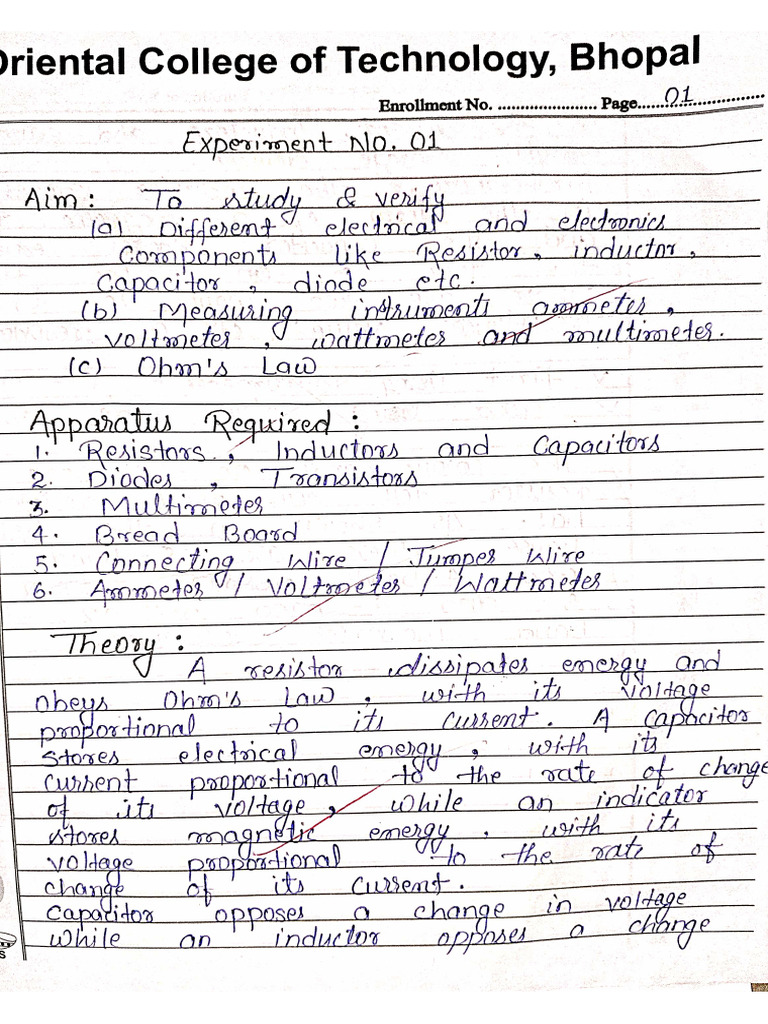 Oriental College of Technology, Bhopal
Enrollment No. ........................ Page......01...............
Experiment No. 01
Aim : To study & verify
(a) Different electrical and electronics
Components like Resistor, inductor,
Capacitor, diode etc.
(b) Measuring instruments ammeter,
voltmeter, wattmeter and multimeter.
(c) Ohm's Law
Apparatus Required :
1. Resistors, Inductors and Capacitors
2. Diodes, Transistors
3. Multimeter
4. Bread Board
5. Connecting Wire / Jumper Wire
6. Ammeter / Voltmeter / Wattmeter
Theory :
A resistor dissipates energy and
obeys Ohm's Law, with its voltage
proportional to its current. A capacitor
stores electrical energy, with its
current proportional to the rate of change
of its voltage, while an indicator
stores magnetic energy, with its
voltage proportional to the rate of
change of its current.
Capacitor opposes a change in voltage
while an inductor opposes a change